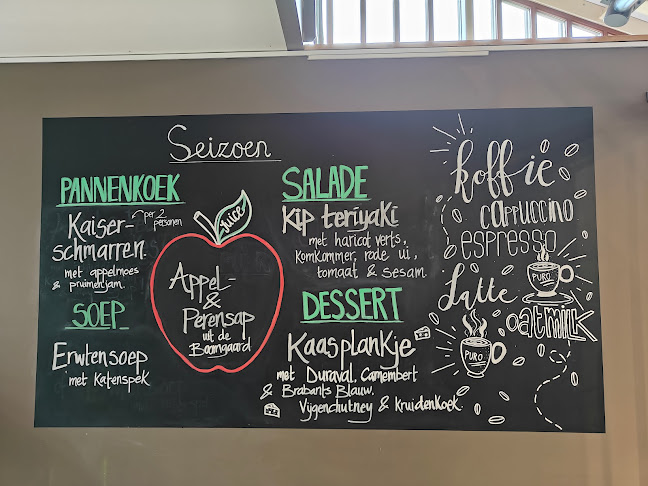 Seizoen
PANNENKOEK
Kaiser-
per 2
personen
schmarren.
met appelmoes
& pruimenjam.
SOEP
Erwtensoep
met Katenspek
Juice
Appel-
&
Perensap
uit de
Boomgaard
SALADE
Kip teriyaki
met haricot verts,
Komkommer, rode ui,
tomaat & sesam
DESSERT
Kaasplankje
met Duraval, Camembert
& Brabants Blauw.
Vijgenchutney & Kruidenkoek.
koffie
cappuccino
espresso
Latte
PURO
oatmilk
PURO